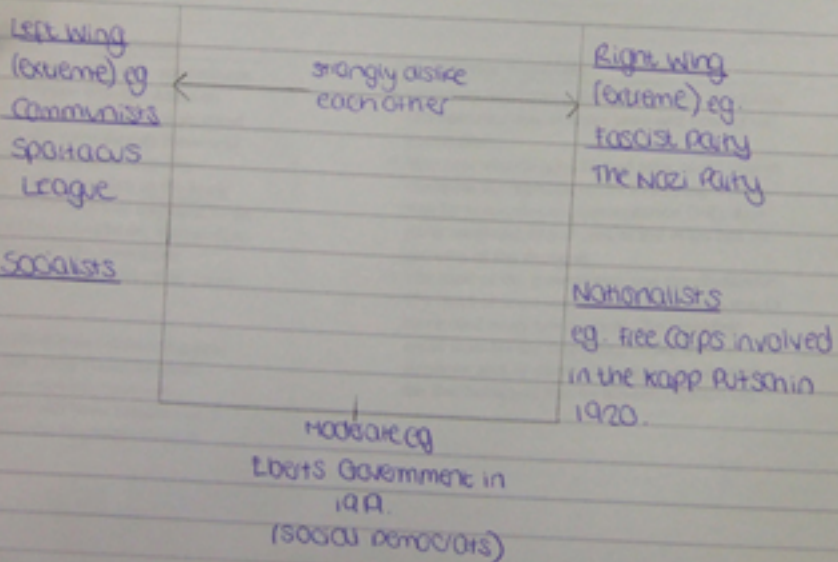 Left wing
(extreme) eg
Communists
Spartacus
League
Socialists
strongly dislike
each other
Right wing
(extreme) eg.
Fascist Party
The Nazi Party
Nationalists
eg. Free Corps involved
in the Kapp Putsch in
1920.
Moderate eg
Eberts Government in
(Social Democrats)